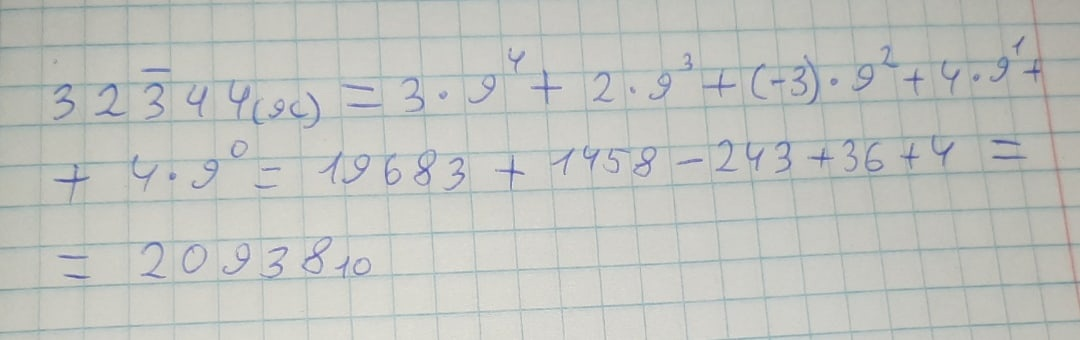 323̅44(9с) = 3·9⁴ + 2·9³ + (-3)·9² + 4·9¹ +
+ 4·9⁰ = 19683 + 1458 - 243 + 36 + 4 =
= 20938₁₀